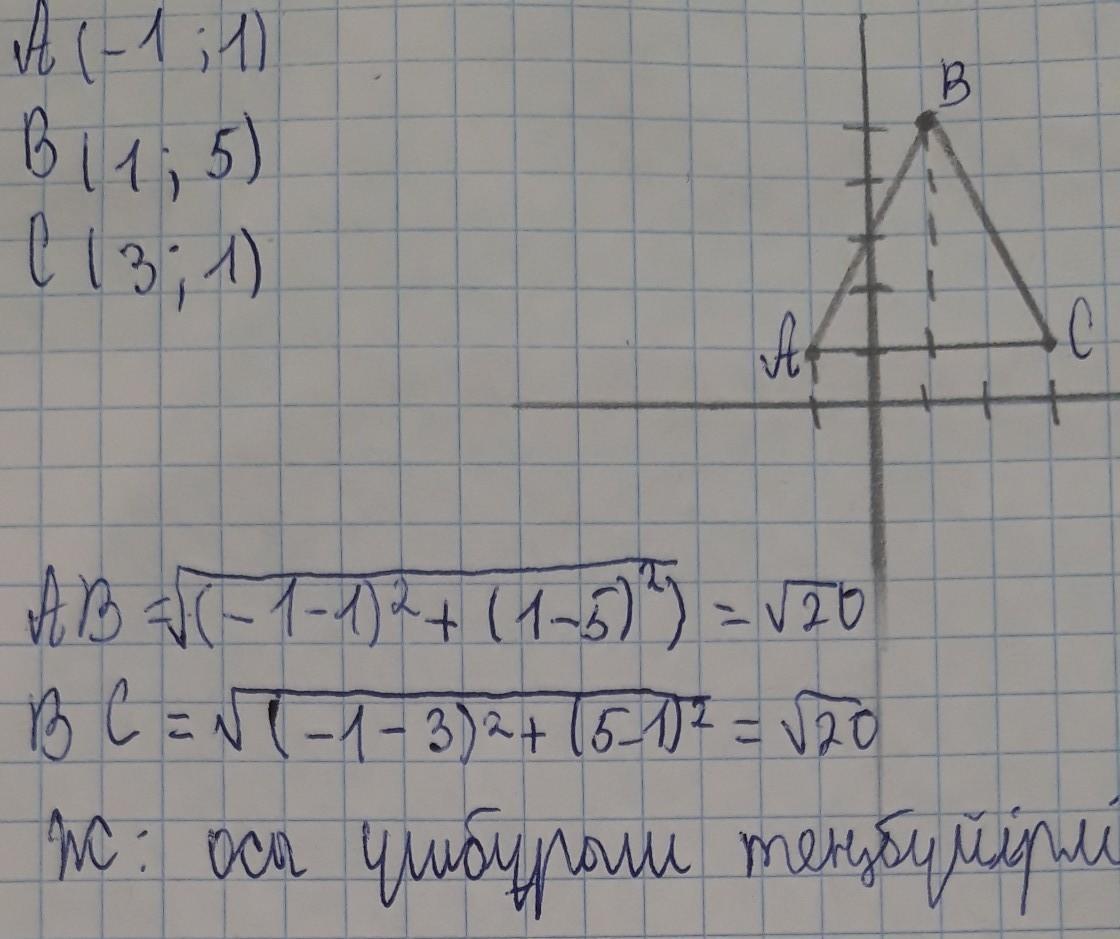 A (-1 ; 1)
B (1 ; 5)
C (3 ; 1)
B
A
C
AB = √(-1-1)² + (1-5)²) = √20
BC = √(-1-3)² + (5-1)² = √20
Ж: осы үшбұрыш теңбүйірлі